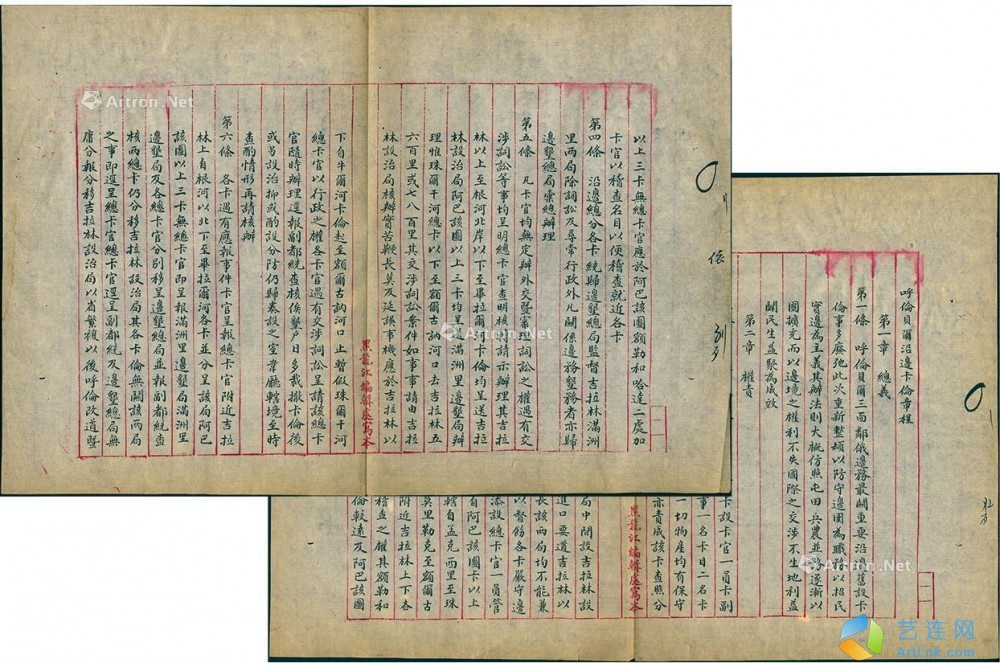 以上三卡無總卡官應於阿巴該圖額勒和哈達二處加
卡官以稽查名目以便稽查就近各卡
第四條 沿邊總分各卡統歸邊墾總局監督吉拉林滿洲
里兩局除詞訟及尋常行政外凡關係邊務墾務者亦歸
邊墾總局彙總辦理
第五條 凡卡官均無定辦外交暨審理詞訟之權遇有交
涉詞訟等事均呈明總卡官查明核轉請示辦理其吉拉
林以上至根河北岸以下至畢拉爾河卡倫均呈送吉拉
林設治局阿巴該圖以上三卡均呈送滿洲里邊墾局辦
理惟珠爾干河總卡以下至額爾古訥河口去吉拉林五
六百里或七八百里其交涉詞訟案件如事事請由吉拉
林設治局核辦實苦鞭長莫及延誤事機應於吉拉林以
黑龍江編輯處寫本
下自牛爾河卡倫起至額爾古訥河口止暫假珠爾干河
總卡官以行政之權各卡官遇有交涉詞訟呈請該總卡
官隨時辦理逕報副都統查核俟墾戶日多裁撤卡倫後
或另設治抑或酌設分防仍歸奏設之室韋廳轄境至時
查酌情形再請核辦
第六條 各卡遇有應報事件卡官呈報總卡官附近吉拉
林上自根河以北下至畢拉爾河各卡並分呈該局阿巴
該圖以上三卡無總卡官即呈報滿洲里邊墾局滿洲里
邊墾局及各總卡官分別移呈邊墾總局並報副都統查
核兩總卡仍分移吉拉林設治局其各卡倫無關該兩局
之事即逕呈總卡官總卡官逕呈副都統及邊墾總局無
庸分報分移吉拉林設治局以省繁複以後呼倫改道暨
呼倫貝爾沿邊卡倫章程
第一章 總義
第一條 呼倫貝爾三面鄰俄邊務最關重要沿邊舊設卡
倫事多廢弛此次重新整頓以防守邊圉為職務以招民
實邊為主義其辦法則大概仿照屯田兵農並務逐漸以
圖擴充而以邊境之權利不失國際之交涉不生地利益
闢民生益聚為成效
第二章 權責
卡設卡官一員卡副
事一名卡目二名卡
一切物產均有保守
亦責成該卡查照分
黑龍江編輯處寫本
局中間設吉拉林設
進口要道吉拉林以
長該兩局均不能兼
以督飭各卡嚴守邊
添設總卡官一員管
自阿巴該圖卡以上
轄自孟克西里至珠
莫里勒克至額爾古
附近吉拉林上下各
稽查之權其額勒和
倫較遠及阿巴該圖
Artron.Net
Artron.Net
Artron.Net
Artron.Net
艺连网
ArtLink.com